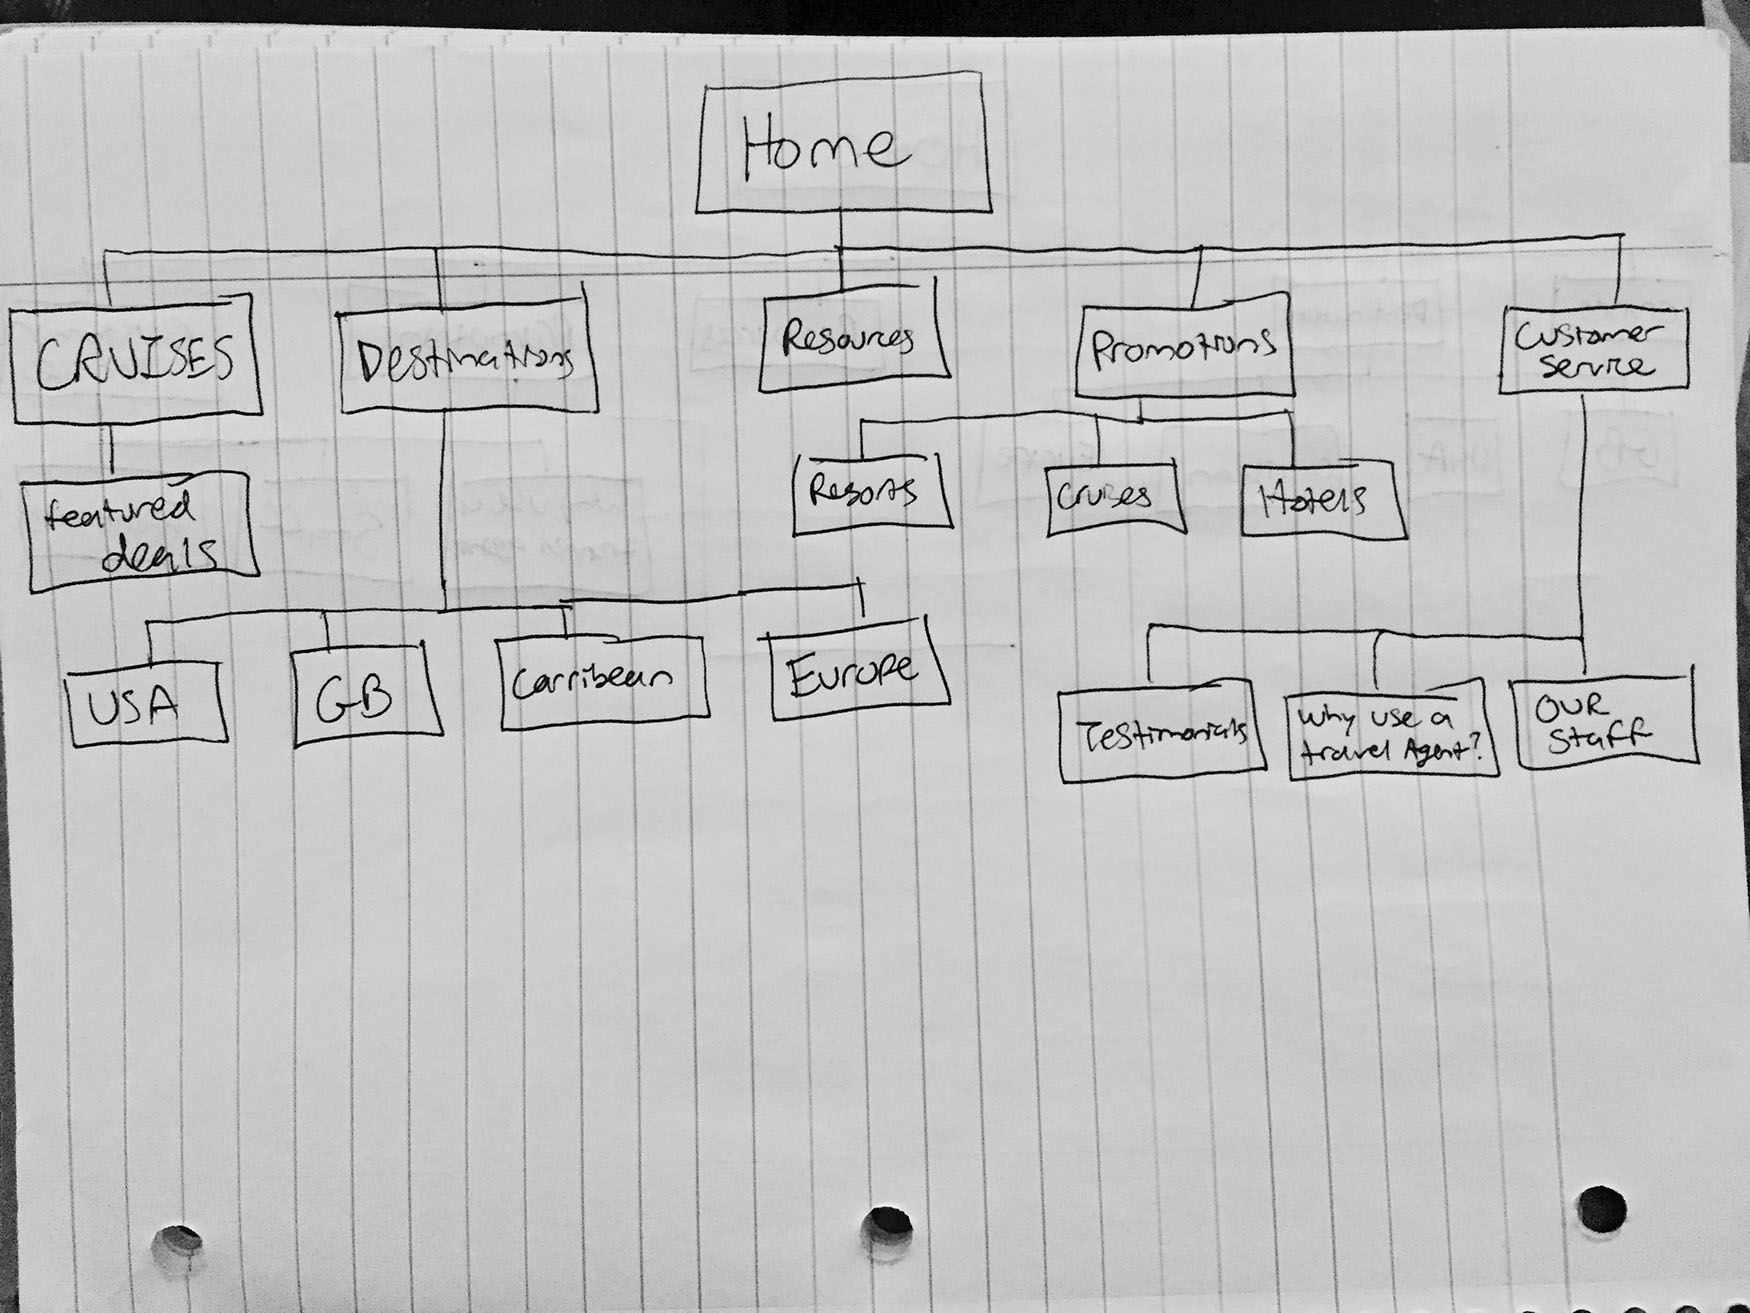 Home
CRUISES
Destinations
Resources
Promotions
Customer
Service
featured
deals
Resorts
Cruises
Hotels
USA
GB
Carribean
Europe
Testimonials
Why use a
travel Agent?
OUR
Staff